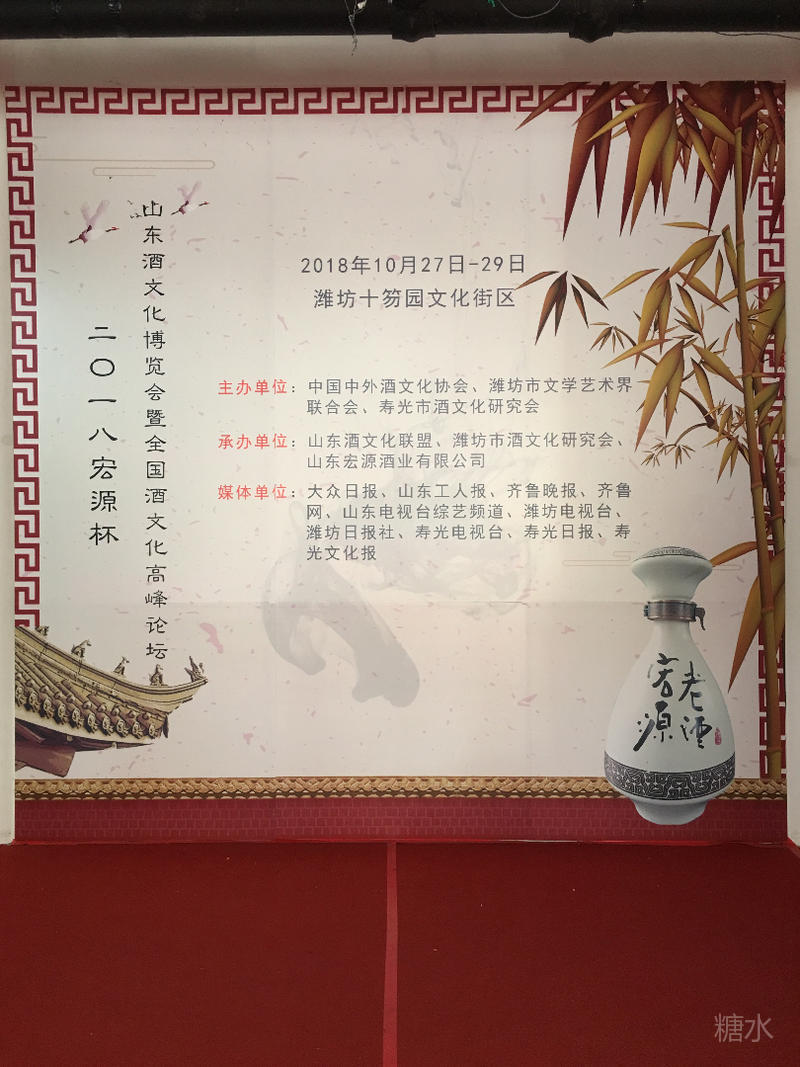 二〇一八宏源杯
山东酒文化博览会暨全国酒文化高峰论坛
2018年10月27日-29日
潍坊十笏园文化街区
主办单位：中国中外酒文化协会、潍坊市文学艺术界
联合会、寿光市酒文化研究会
承办单位：山东酒文化联盟、潍坊市酒文化研究会、
山东宏源酒业有限公司
媒体单位：大众日报、山东工人报、齐鲁晚报、齐鲁
网、山东电视台综艺频道、潍坊电视台、
潍坊日报社、寿光电视台、寿光日报、寿
光文化报
老酒
宏源
糖水